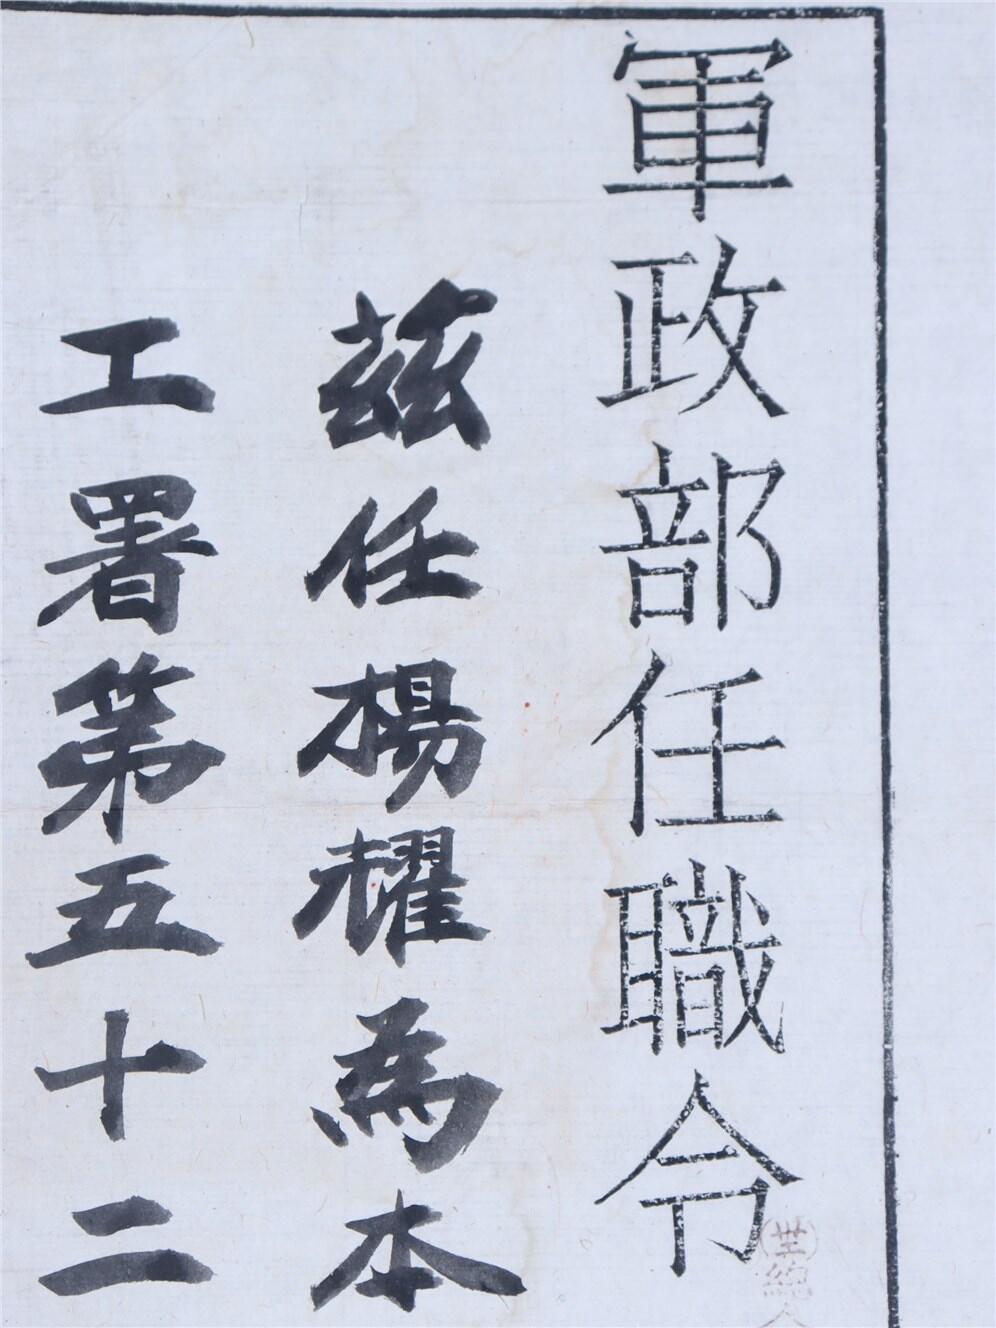 軍政部任職令
茲任楊耀為本
工署第五十二